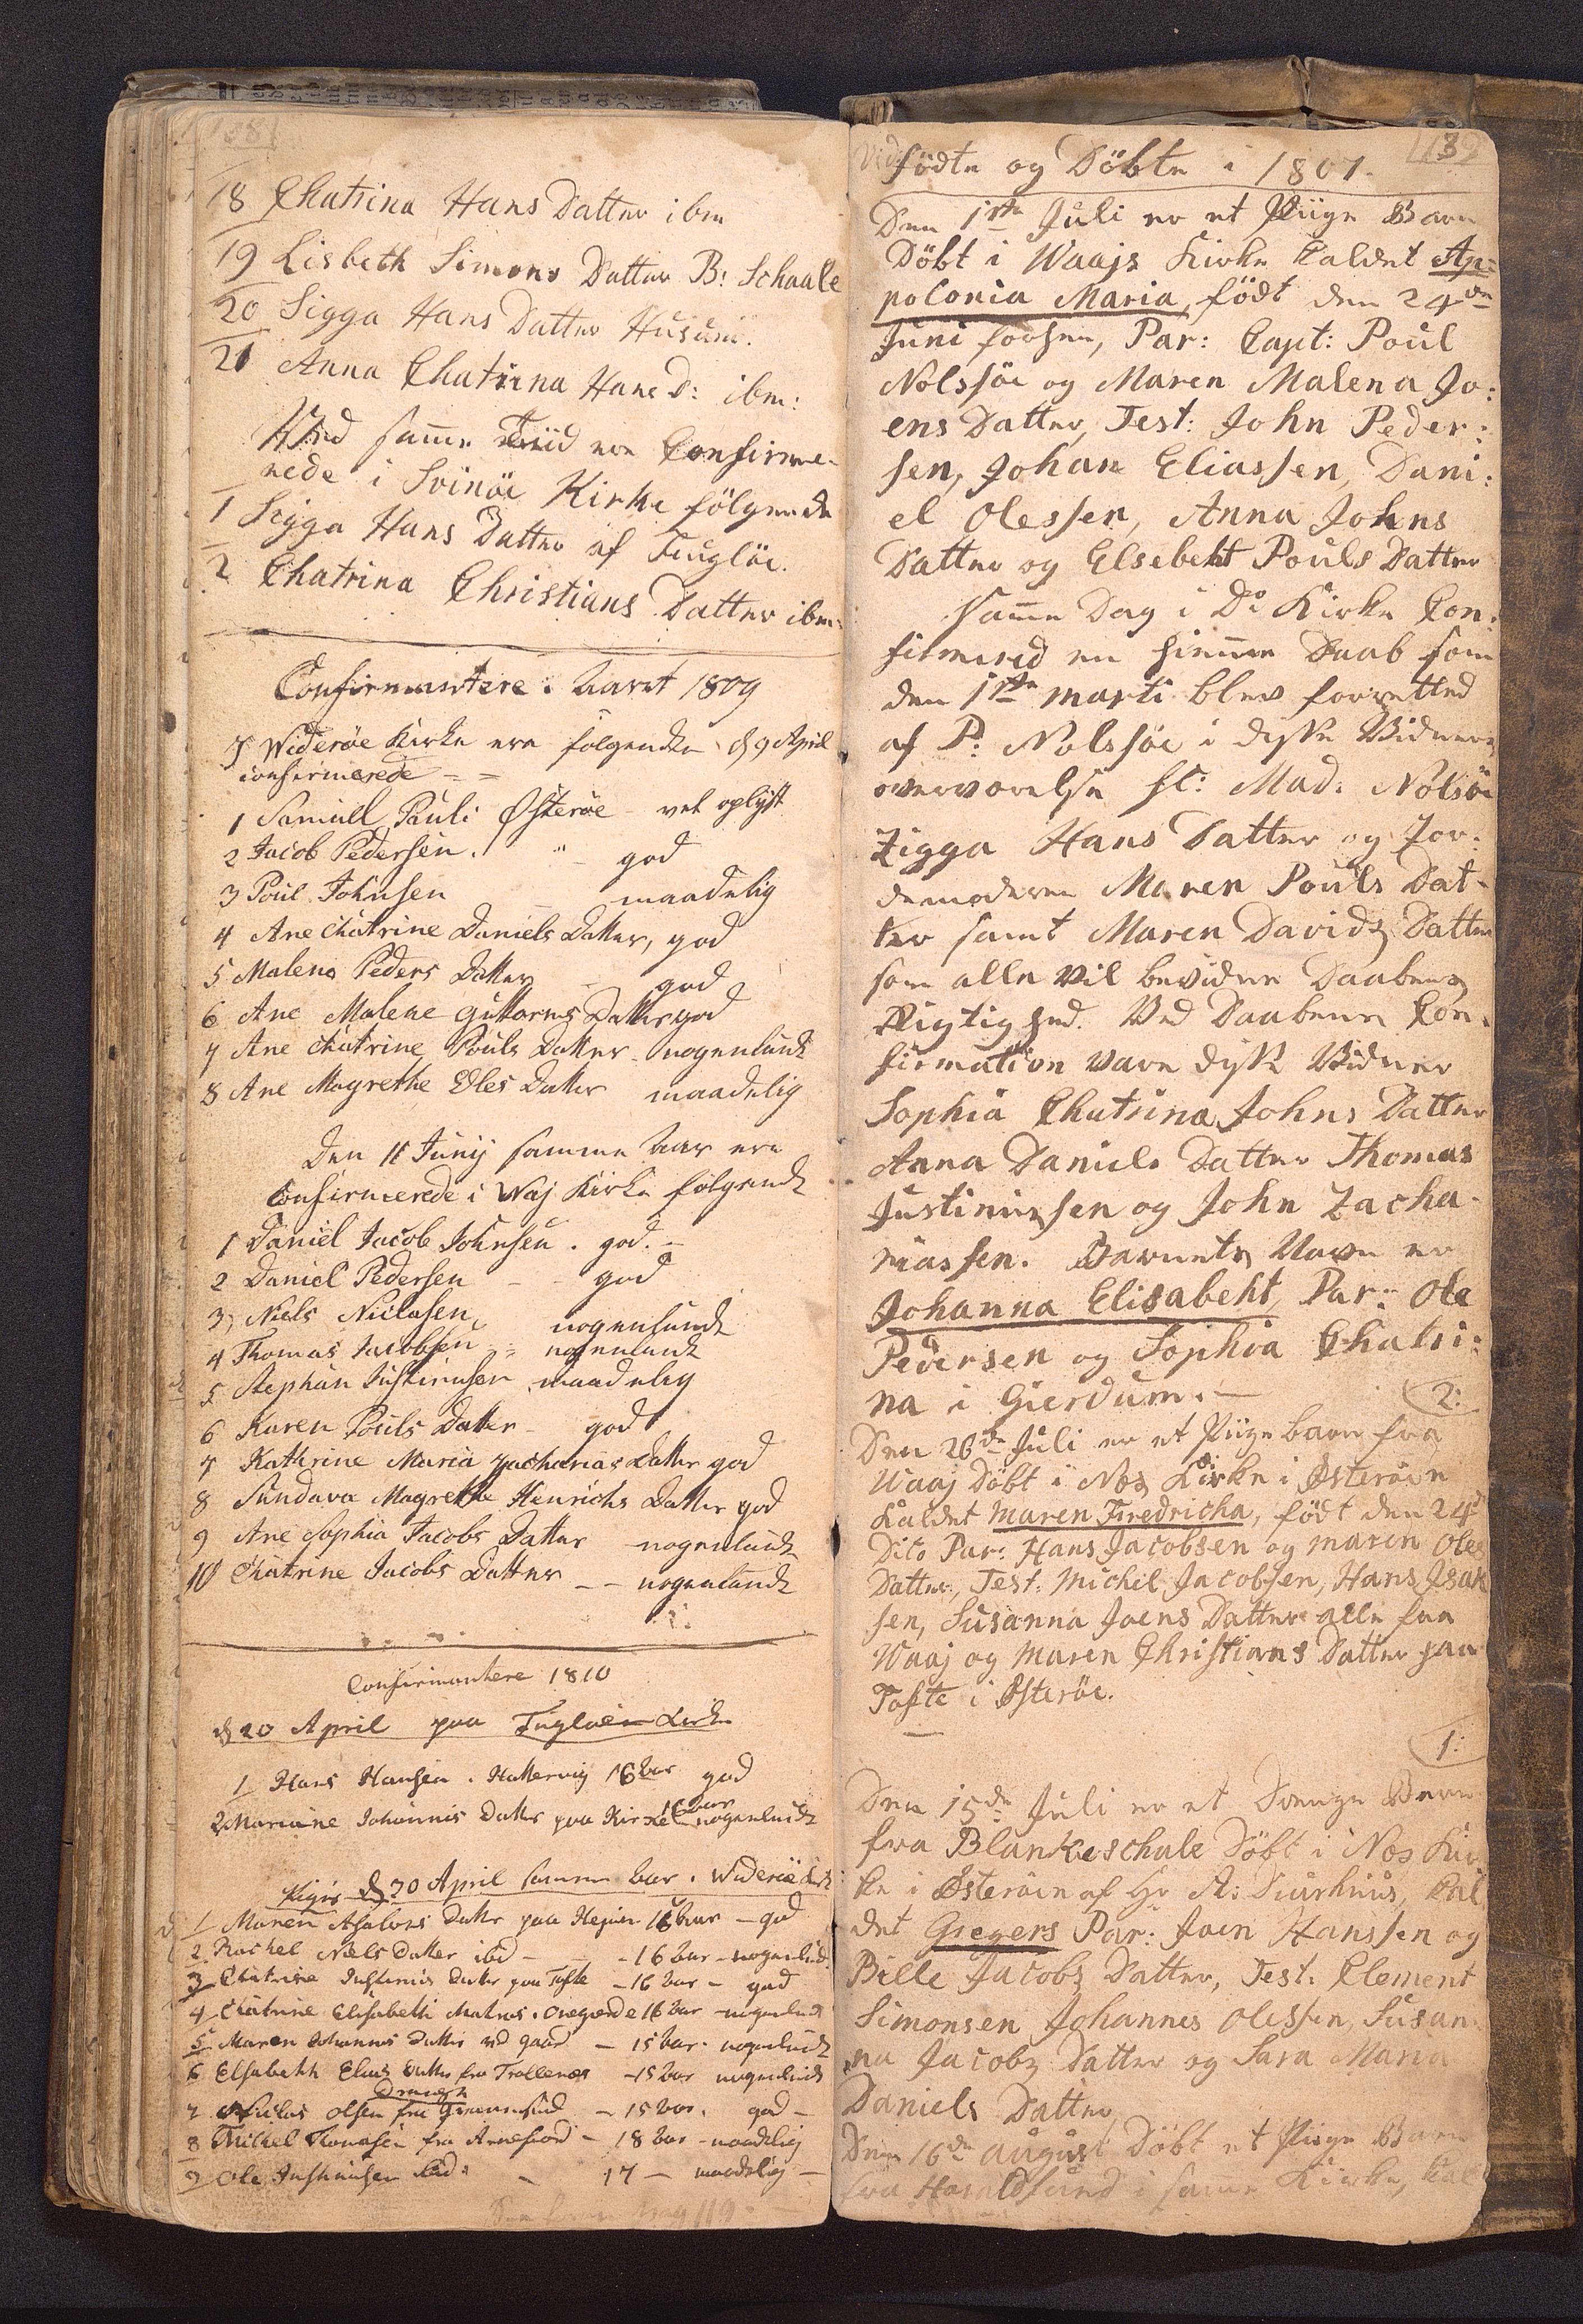 138
18 Chatrina Hans Datter ibm
19 Lisbeth Simons Datter B: Schaale
20 Sigga Hans Datter Husum.
21 Anna Chatrina Hans D: ibm:
Ved samme Tiid ere Confirme-
rede i Svinöe Kirke fölgende
1 Sigga Hans Datter af Fuglöe.
2 Chatrina Christians Datter ibm:
Confirmantere i Aaret 1809
I Wideröe Kirke ere følgende d 9 April
confirmerede
1 Samuel Pauli Østerøe - vel oplyst
2 Jacob Pedersen. " god
3 Poul Johnsen - maadelig
4 Ane Chatrine Daniels Datter, god
5 Malena Peders Datter - god
6 Ane Malene Guttorms Datter god
7 Ane Chatrine Pouls Datter - nogenlunde
8 Ane Magrethe Oles Datter maadelig
Den 11 Junij samme Aar ere
Confirmerede i Waj Kirke følgende
1 Daniel Jacob Johnsen. god. -
2 Daniel Pedersen - - god
3 Niels Nielasen, nogenlunde
4 Thomas Jacobsen - nogenlunde
5 Stephan Justinusen maadelig
6 Karen Pouls Datter - god
7 Kathrine Maria Zacharias Datter god
8 Sundava Magrethe Henrichs Datter god
9 Ane Sophia Jacobs Datter - nogenlunde
10 Chatrine Jacobs Datter - - nogenlunde
Confirmantere 1810
d 20 April paa Fugløe Kirke
1 Hans Hansen. Hattervig 16 Aar god
2 Mariane Johannis Datter paa Kirke 15 Aar nogenlunde
Piger d 20 April samme Aar i Widerøe Kirke
1 Maren Absalons Datter paa Hejgum 16 Aar - god
2. Rachel Niels Datter ibid - - 16 Aar - nogenlund.
3 Chatrine Justinus Datter paa Tofte - 16 Aar - god
4 Chatrine Elisabeth 16 Aar nogenlund
5 Maren Johannis Datter ved Gaard - 15 Aar. nogenlunde
6 Elsabeth Elias Datter fra Trollenes - 15 Aar nogenlunde
Drenge
7 Niclas Olsen fra - 15 Aar. god -
8 Mikkel Thomasen fra Arnefiord - 18 Aar - maadelig
9 Ole Justinusen ibid: - 17 - maadelig -
pag 119
139
Födte og Döbte i 1807.
Den 1ste Juli er et Piige Barn
Döbt i Waajs Kirke kaldet Ap:
polonia Maria, född den 24de
Juni forhen, Par: Capt: Poul
Nolssöe og Maren Malena Jo:
ens Datter, Test: John Peder:
sen, Johan Eliassen, Dani:
el Olessen, Anna Johns
Datter og Elsebeht Pouls Datter
Samme Dag i Do Kirke Con:
firmered en hiemme Daab som
den 1ste Marti blev forretted
af P: Nolssöe i disse Vidners
overværelse sc: Mad: Nolsöe
Zigga Hans Datter og Jor:
demoderen Maren Pouls Dat-
ter samt Maren Davids Datter
som alle vil bevidne Daabens
Rigtighed. Ved Daabens Con-
firmation vare disse Vidner
Sophia Chatrina Johns Datter
Anna Daniels Datter Thomas
Justinussen og John Zacha-
riassen. Barnets Navn er
Johanna Elisabeht, Par: Ole
Pedersen og Sophia Chatri:
na i Gierdum. -
2:
Den 26de Juli er et Piigebarn fra
Waaj Döbt i Nos Kirke i Österöen
kaldet Maren Fredricha, födt den 24de
Dito Par: Hans Jacobsen og Maren Oles
Datter, Test: Michel Jacobsen, Hans Isak
sen, Susanna Joens Datter alle fra
Waaj og Maren Christians Datter paa
Tofte i Österöe.
1:
Den 15de Juli er et Drenge Barn
fra Blankeschale Döbt i Nos Kir
ke i Österöen af Hr A: Diurhuus, kal
det Gregers Par: Joen Hanssen og
Bille Jacobs Datter, Test: Clement
Simonsen Johannes Olessen, Susan
na Jacobs Datter og Sara Maria
Daniels Datter
Den 16de August Döbt et Piige Barn
fra Haraldsund i samme Kirke, kal